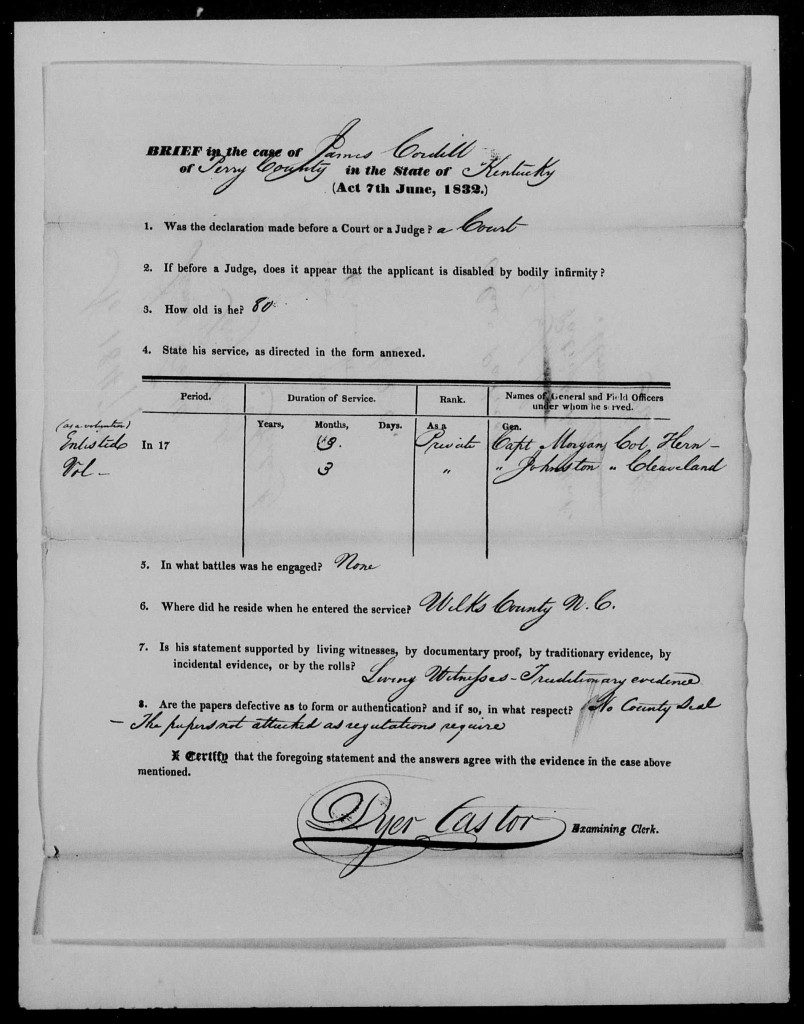 BRIEF in the case of James Cordill
of Perry County in the State of Kentucky
(Act 7th June, 1832.)
1. Was the declaration made before a Court or a Judge? a Court
2. If before a Judge, does it appear that the applicant is disabled by bodily infirmity?
3. How old is he? 80
4. State his service, as directed in the form annexed.
Period. Duration of Service. Rank. Names of General and Field Officers
under whom he served.
(as a volunteer) Years, Months, Days. As a Gen.
Enlisted In 17 Private Capt Morgan, Col Hern —
Vol — 3 " " Johnston " Cleaveland
5. In what battles was he engaged? None
6. Where did he reside when he entered the service? Wilks County N. C.
7. Is his statement supported by living witnesses, by documentary proof, by traditionary evidence, by
incidental evidence, or by the rolls? Living Witnesses — Traditionary evidence
8. Are the papers defective as to form or authentication? and if so, in what respect? No County Seal
— The papers not attached as regulations require
I Certify that the foregoing statement and the answers agree with the evidence in the case above
mentioned.
Dyer Castor Examining Clerk.